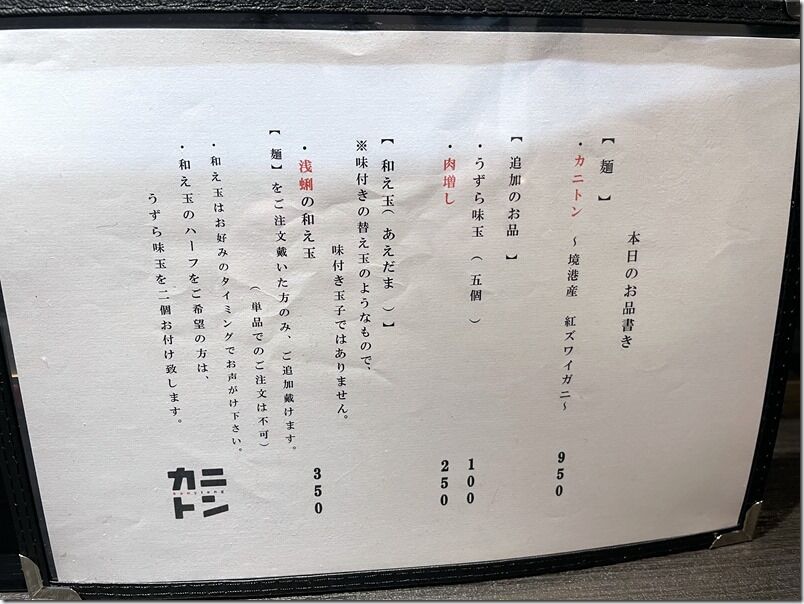 本日のお品書き
【麺】
・カニトン 〜境港産 紅ズワイガニ〜 950
【追加のお品】
・うずら味玉(五個) 100
・肉増し 250
【和え玉(あえだま)】
※味付きの替え玉のようなもので、
味付き玉子ではありません。
・浅蜊の和え玉 350
(単品でのご注文は不可)
【麺】をご注文戴いた方のみ、ご追加戴けます。
・和え玉はお好みのタイミングでお声がけ下さい。
・和え玉のハーフをご希望の方は、
うずら味玉を二個お付け致します。
カニ
トン